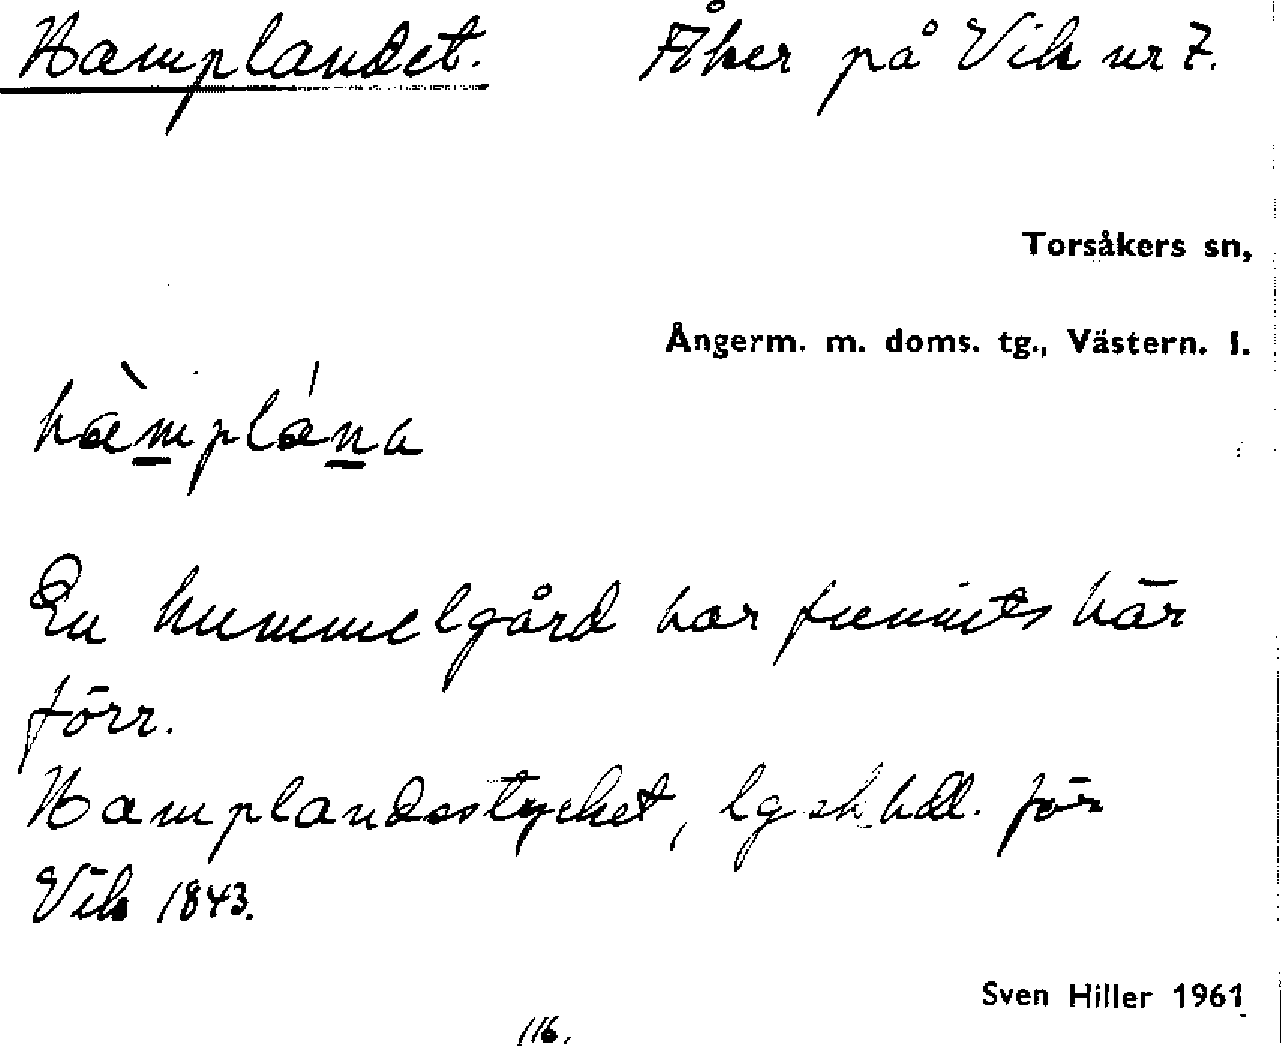 Hamplandet. Åker på Vik nr 7.
Torsåkers sn,
Ångerm. m. doms. tg., Västern. l.
hàmplána
En hummelgård har funnits här
förr.
Hamplandsstycket, lgskhdl. för
Vik 1843.
Sven Hiller 1961
116.